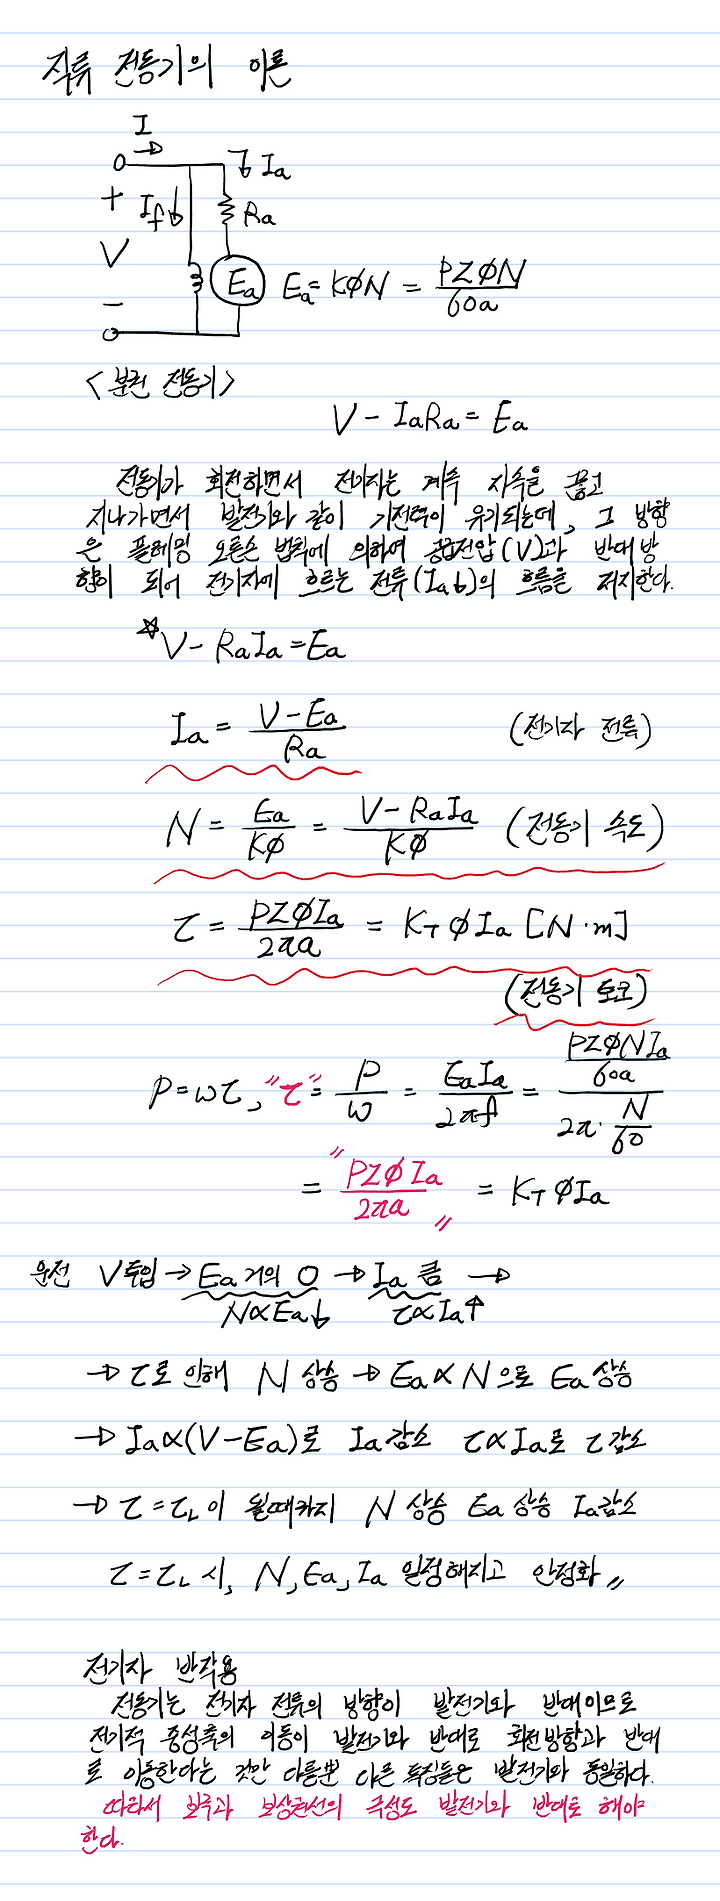 직류 전동기의 이론
I
Ia
+ If Ra
V
Ea Ea = KØN = PZØN / 60a
-
<분권 전동기>
V - IaRa = Ea
전동기가 회전하면서 전기자는 계속 자속을 끊고
지나가면서 발전기와 같이 기전력이 유기되는데, 그 방향
은 플레밍 오른손 법칙에 의하여 공급전압(V)과 반대방
향이 되어 전기자에 흐르는 전류(Ia)의 흐름을 저지한다.
☆V - RaIa = Ea
Ia = V - Ea / Ra (전기자 전류)
N = Ea / KØ = V - RaIa / KØ (전동기 속도)
τ = PZØIa / 2πa = KT ØIa [N·m]
(전동기 토크)
P = ωτ, "τ" = P / ω = EaIa / 2πf = PZØNIa / 60a / 2π · N / 60
= "PZØIa / 2πa" = KT ØIa
운전 V투입 → Ea 거의 0 → Ia 큼 →
N∝Ea↓ τ∝Ia↑
→ τ로 인해 N 상승 → Ea ∝ N 으로 Ea 상승
→ Ia∝(V-Ea)로 Ia 감소 τ∝Ia로 τ 감소
→ τ = τL 이 될때까지 N 상승 Ea 상승 Ia 감소
τ = τL 시, N, Ea, Ia 일정해지고 안정화 〃
전기자 반작용
전동기는 전기자 전류의 방향이 발전기와 반대이므로
전기적 중성축의 이동이 발전기와 반대로 회전방향과 반대
로 이동한다는 것만 다를뿐 다른 특징들은 발전기와 동일하다.
따라서 보극과 보상권선의 극성도 발전기와 반대로 해야
한다.